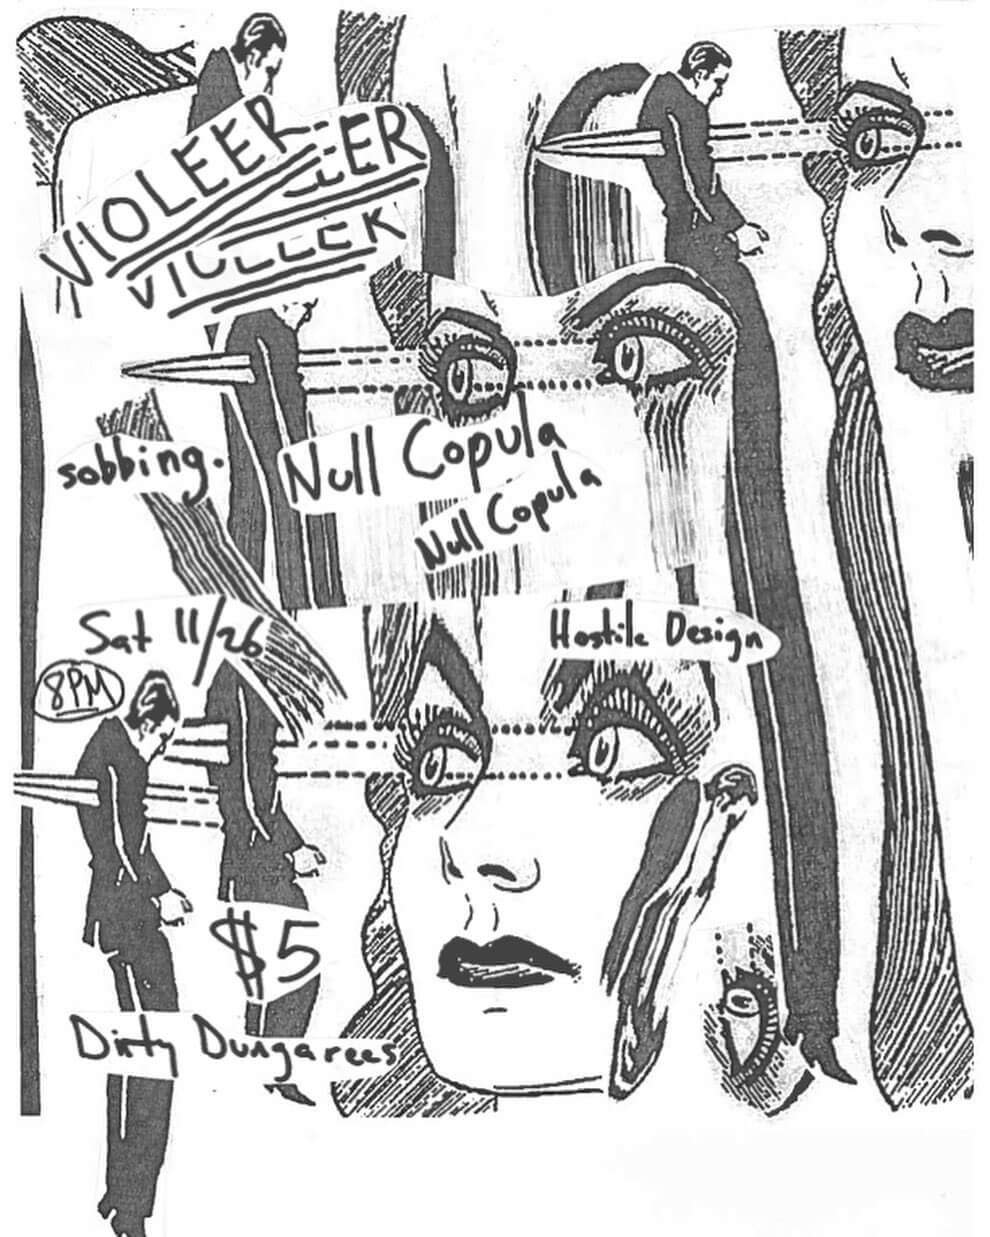 VIOLEER
EER
VIOLEER
sobbing.
Null Copula
Null Copula
Sat 11/26
Hostile Design
8PM
$5
Dirty Dungarees